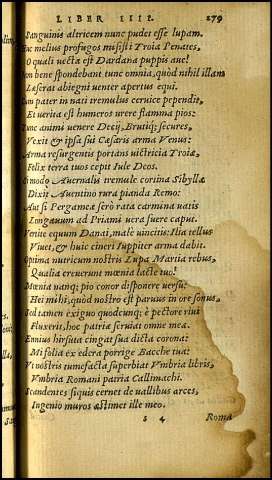 LIBER IIII. 279
Sanguinis altricem nunc pudet esse lupam.
Huc melius profugos misisti Troia Penates,
O quali uecta est Dardana puppis aue!
Iam bene spondebant tunc omnia, quòd nihil illam
Læserat abiegni uenter apertus equi.
Cum pater in nati tremulus ceruice pependit,
Et uerita est humeros urere flamma pios:
Tunc animi uenere Decij, Brutiq; secures,
Vexit & ipsa sui Cæsaris arma Venus:
Arma resurgentis portans uictricia Troiæ,
Felix terra tuos cepit Iule Deos.
Si modo Auernalis tremulæ cortina Sibyllæ
Dixit Auentino rura pianda Remo:
Aut si Pergameæ serò rata carmina uatis
Longæuum ad Priami uera fuere caput.
Vertite equum Danai, malè uincitis: Ilia tellus
Viuet, & huic cineri Iuppiter arma dabit.
Optima nutricum nostris Lupa Martia rebus,
Qualia creuerunt mœnia lacte tuo!
Mœnia nanq; pio conor disponere uersu:
Hei mihi, quòd nostro est paruus in ore sonus,
Sed tamen exiguo quodcunq; è pectore riui
Fluxerit, hoc patria seruiat omne meæ.
Ennius hirsuta cingat sua dicta corona:
Mi folia ex edera porrige Bacche tua:
Vt nostris tumefacta superbiat Vmbria libris,
Vmbria Romani patria Callimachi.
Scandentes siquis cernet de uallibus arces,
Ingenio muros æstimet ille meo.
s 4 Roma